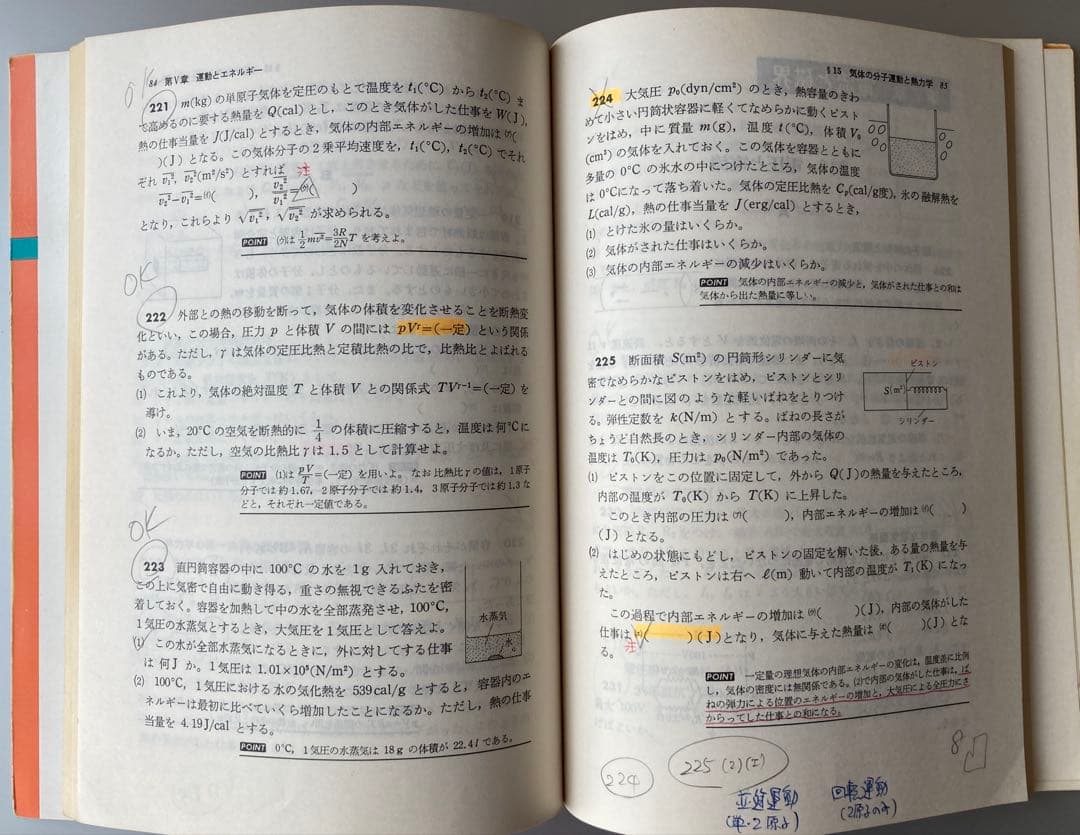 84 第Ⅴ章 運動とエネルギー
OK
221 m(kg) の単原子気体を定圧のもとで温度を t₁(°C) から t₂(°C) ま
で高めるのに要する熱量を Q(cal) とし，このとき気体がした仕事を W(J)，
熱の仕事当量を J(J/cal) とするとき，気体の内部エネルギーの増加は (ｱ)(
)(J) となる。この気体分子の2乗平均速度を，t₁(°C)，t₂(°C) でそれ
ぞれ v₁²，v₂²(m²/s²) とすれば
注
v₂²－v₁²=(ｲ)( )， v₂²/v₁²=(ｳ)( )
となり，これらより √v₁²，√v₂² が求められる。
POINT (ｳ)は 1/2 mv²=3R/2N T を考えよ。
OK
222 外部との熱の移動を断って，気体の体積を変化させることを断熱変
化といい，この場合，圧力 p と体積 V の間には pVʳ=(一定) という関係
がある。ただし，γ は気体の定圧比熱と定積比熱の比で，比熱比とよばれる
ものである。
(1) これより，気体の絶対温度 T と体積 V との関係式 TVʳ⁻¹=(一定) を
導け。
(2) いま，20°C の空気を断熱的に 1/4 の体積に圧縮すると，温度は何°C に
なるか。ただし，空気の比熱比 γ は 1.5 として計算せよ。
POINT (1)は pV/T=(一定) を用いよ。なお 比熱比 γ の値は，1原子
分子では約 1.67，2原子分子では約 1.4，3原子分子では約 1.3 な
どと，それぞれ一定値である。
OK
223 直円筒容器の中に 100°C の水を 1g 入れておき，
この上に気密で自由に動き得る，重さの無視できるふたを密
着しておく。容器を加熱して中の水を全部蒸発させ，100°C，
1気圧の水蒸気とするとき，大気圧を1気圧として答えよ。
(1) この水が全部水蒸気になるときに，外に対してする仕事
は何 J か。1気圧は 1.01×10⁵(N/m²) とする。
(2) 100°C，1気圧における水の気化熱を 539cal/g とすると，容器内のエ
ネルギーは最初に比べていくら増加したことになるか。ただし，熱の仕事
当量を 4.19J/cal とする。
水蒸気
水
POINT 0°C，1気圧の水蒸気は 18g の体積が 22.4ℓ である。
§15 気体の分子運動と熱力学 85
224 大気圧 p₀(dyn/cm²) のとき，熱容量のきわ
めて小さい円筒状容器に軽くてなめらかに動くピスト
ンをはめ，中に質量 m(g)，温度 t(°C)，体積 V₀
(cm³) の気体を入れておく。この気体を容器とともに
多量の 0°C の氷水の中につけたところ，気体の温度
は 0°C になって落ち着いた。気体の定圧比熱を Cₚ(cal/g度)，氷の融解熱を
L(cal/g)，熱の仕事当量を J(erg/cal) とするとき，
(1) とけた氷の量はいくらか。
(2) 気体がされた仕事はいくらか。
(3) 気体の内部エネルギーの減少はいくらか。
POINT 気体の内部エネルギーの減少と，気体がされた仕事との和は
気体から出た熱量に等しい。
225 断面積 S(m²) の円筒形シリンダーに気
密でなめらかなピストンをはめ，ピストンとシリ
ンダーとの間に図のような軽いばねをとりつけ
る。弾性定数を k(N/m) とする。ばねの長さが
ちょうど自然長のとき，シリンダー内部の気体の
温度は T₀(K)，圧力は p₀(N/m²) であった。
ピストン
S(m²)
シリンダー
(1) ピストンをこの位置に固定して，外から Q(J) の熱量を与えたところ，
内部の温度が T₀(K) から T(K) に上昇した。
このとき内部の圧力は (ｱ)( )，内部エネルギーの増加は (ｲ)( )
(J) となる。
(2) はじめの状態にもどし，ピストンの固定を解いた後，ある量の熱量を与
えたところ，ピストンは右へ ℓ(m) 動いて内部の温度が T₁(K) になっ
た。
この過程で内部エネルギーの増加は (ｳ)( )(J)，内部の気体がした
仕事は (ｴ)( )(J) となり，気体に与えた熱量は (ｵ)( )(J) とな
る。
注
POINT 一定量の理想気体の内部エネルギーの変化は，温度差に比例
し，気体の密度には無関係である。(2)で内部の気体がした仕事は，ば
ねの弾力による位置のエネルギーの増加と，大気圧による全圧力にさ
からってした仕事との和になる。
224
225 (2)(エ)
8
並進運動
(単・2原子)
回転運動
(2原子のみ)